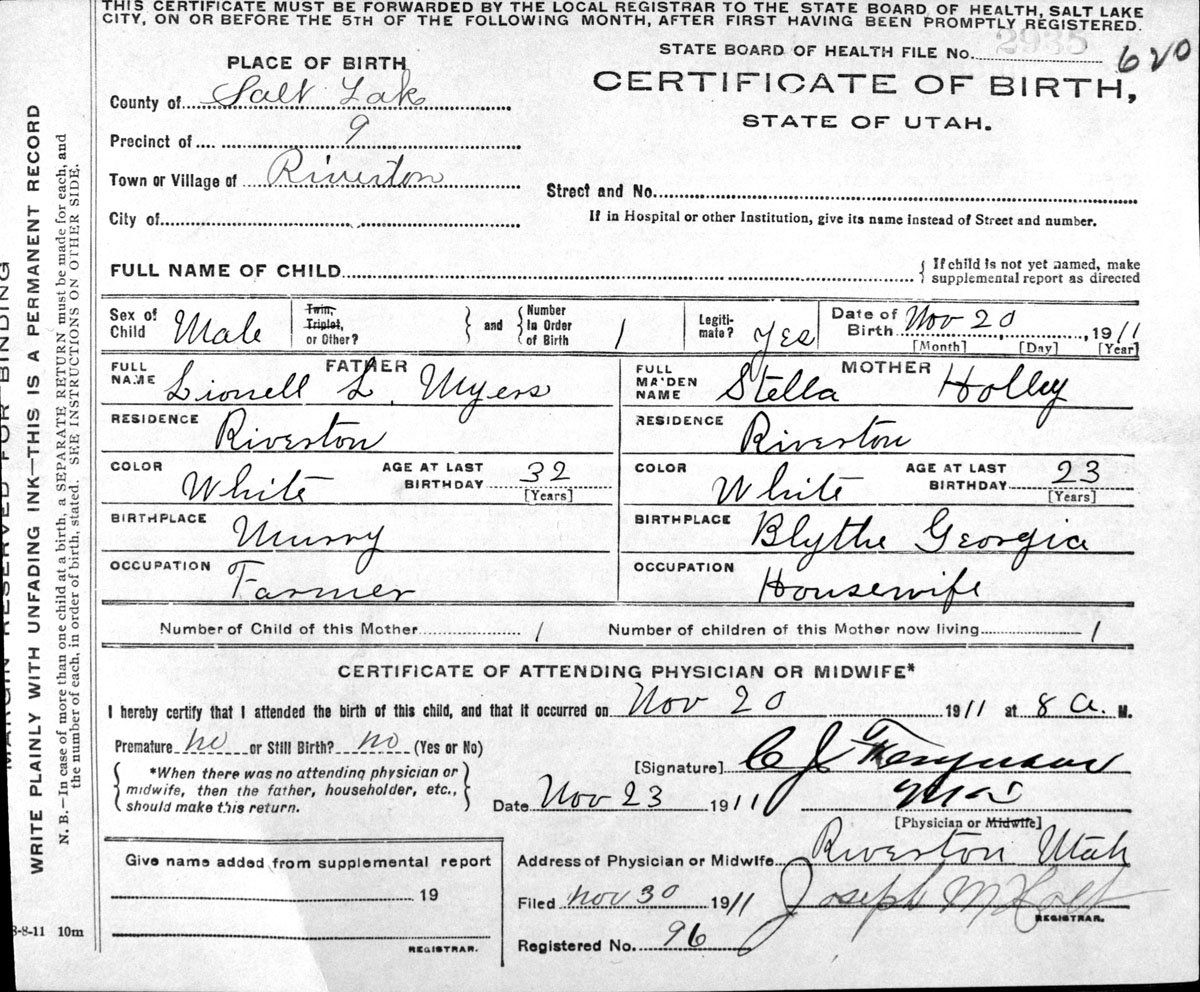 THIS CERTIFICATE MUST BE FORWARDED BY THE LOCAL REGISTRAR TO THE STATE BOARD OF HEALTH, SALT LAKE
CITY, ON OR BEFORE THE 5TH OF THE FOLLOWING MONTH, AFTER FIRST HAVING BEEN PROMPTLY REGISTERED.
STATE BOARD OF HEALTH FILE No. 2935 620
PLACE OF BIRTH
CERTIFICATE OF BIRTH,
STATE OF UTAH.
County of Salt Lake
Precinct of 9
Town or Village of Riverton
Street and No.
City of
If in Hospital or other Institution, give its name instead of Street and number.
FULL NAME OF CHILD
{ If child is not yet named, make
supplemental report as directed
Sex of Child Male
Twin, Triplet, or Other? } and { Number in Order of Birth 1
Legiti-mate? Yes
Date of Birth Nov 20, 1911
[Month] [Day] [Year]
FATHER
FULL NAME Lionell L. Myers
MOTHER
FULL MAIDEN NAME Stella Holley
RESIDENCE Riverton
RESIDENCE Riverton
COLOR White AGE AT LAST BIRTHDAY 32 [Years]
COLOR White AGE AT LAST BIRTHDAY 23 [Years]
BIRTHPLACE Murry
BIRTHPLACE Blythe Georgia
OCCUPATION Farmer
OCCUPATION Housewife
Number of Child of this Mother 1 Number of children of this Mother now living 1
CERTIFICATE OF ATTENDING PHYSICIAN OR MIDWIFE*
I hereby certify that I attended the birth of this child, and that it occurred on Nov 20 1911 at 8 a. M.
Premature no or Still Birth? no (Yes or No)
[Signature] C J
{ *When there was no attending physician or
midwife, then the father, householder, etc.,
should make this return. }
Date Nov 23 1911
[Physician or Midwife]
Give name added from supplemental report
19
REGISTRAR.
Address of Physician or Midwife Riverton Utah
Filed Nov 30 1911 Joseph M Holt
REGISTRAR.
Registered No. 96
3-8-11 10m
MARGIN RESERVED FOR BINDING
WRITE PLAINLY WITH UNFADING INK—THIS IS A PERMANENT RECORD
N. B.—In case of more than one child at a birth, a SEPARATE RETURN must be made for each, and
the number of each, in order of birth, stated. SEE INSTRUCTIONS ON OTHER SIDE.